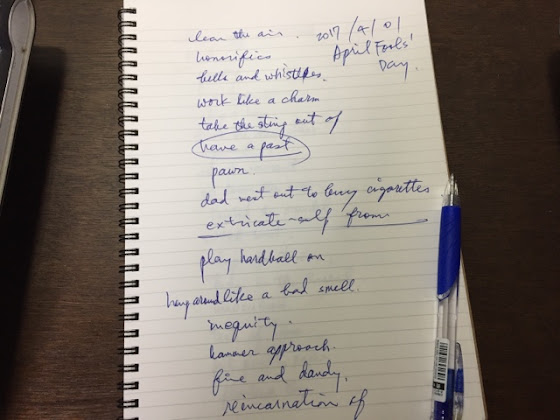 clear the air. 2017/4/01
honorifics April Fools'
bells and whistles. Day.
work like a charm
take the sting out of
have a past
pawn.
dad went out to buy cigarettes
extricate-self from
play hardball on
hang around like a bad smell.
inequity.
hammer approach.
fine and dandy.
reincarnation of